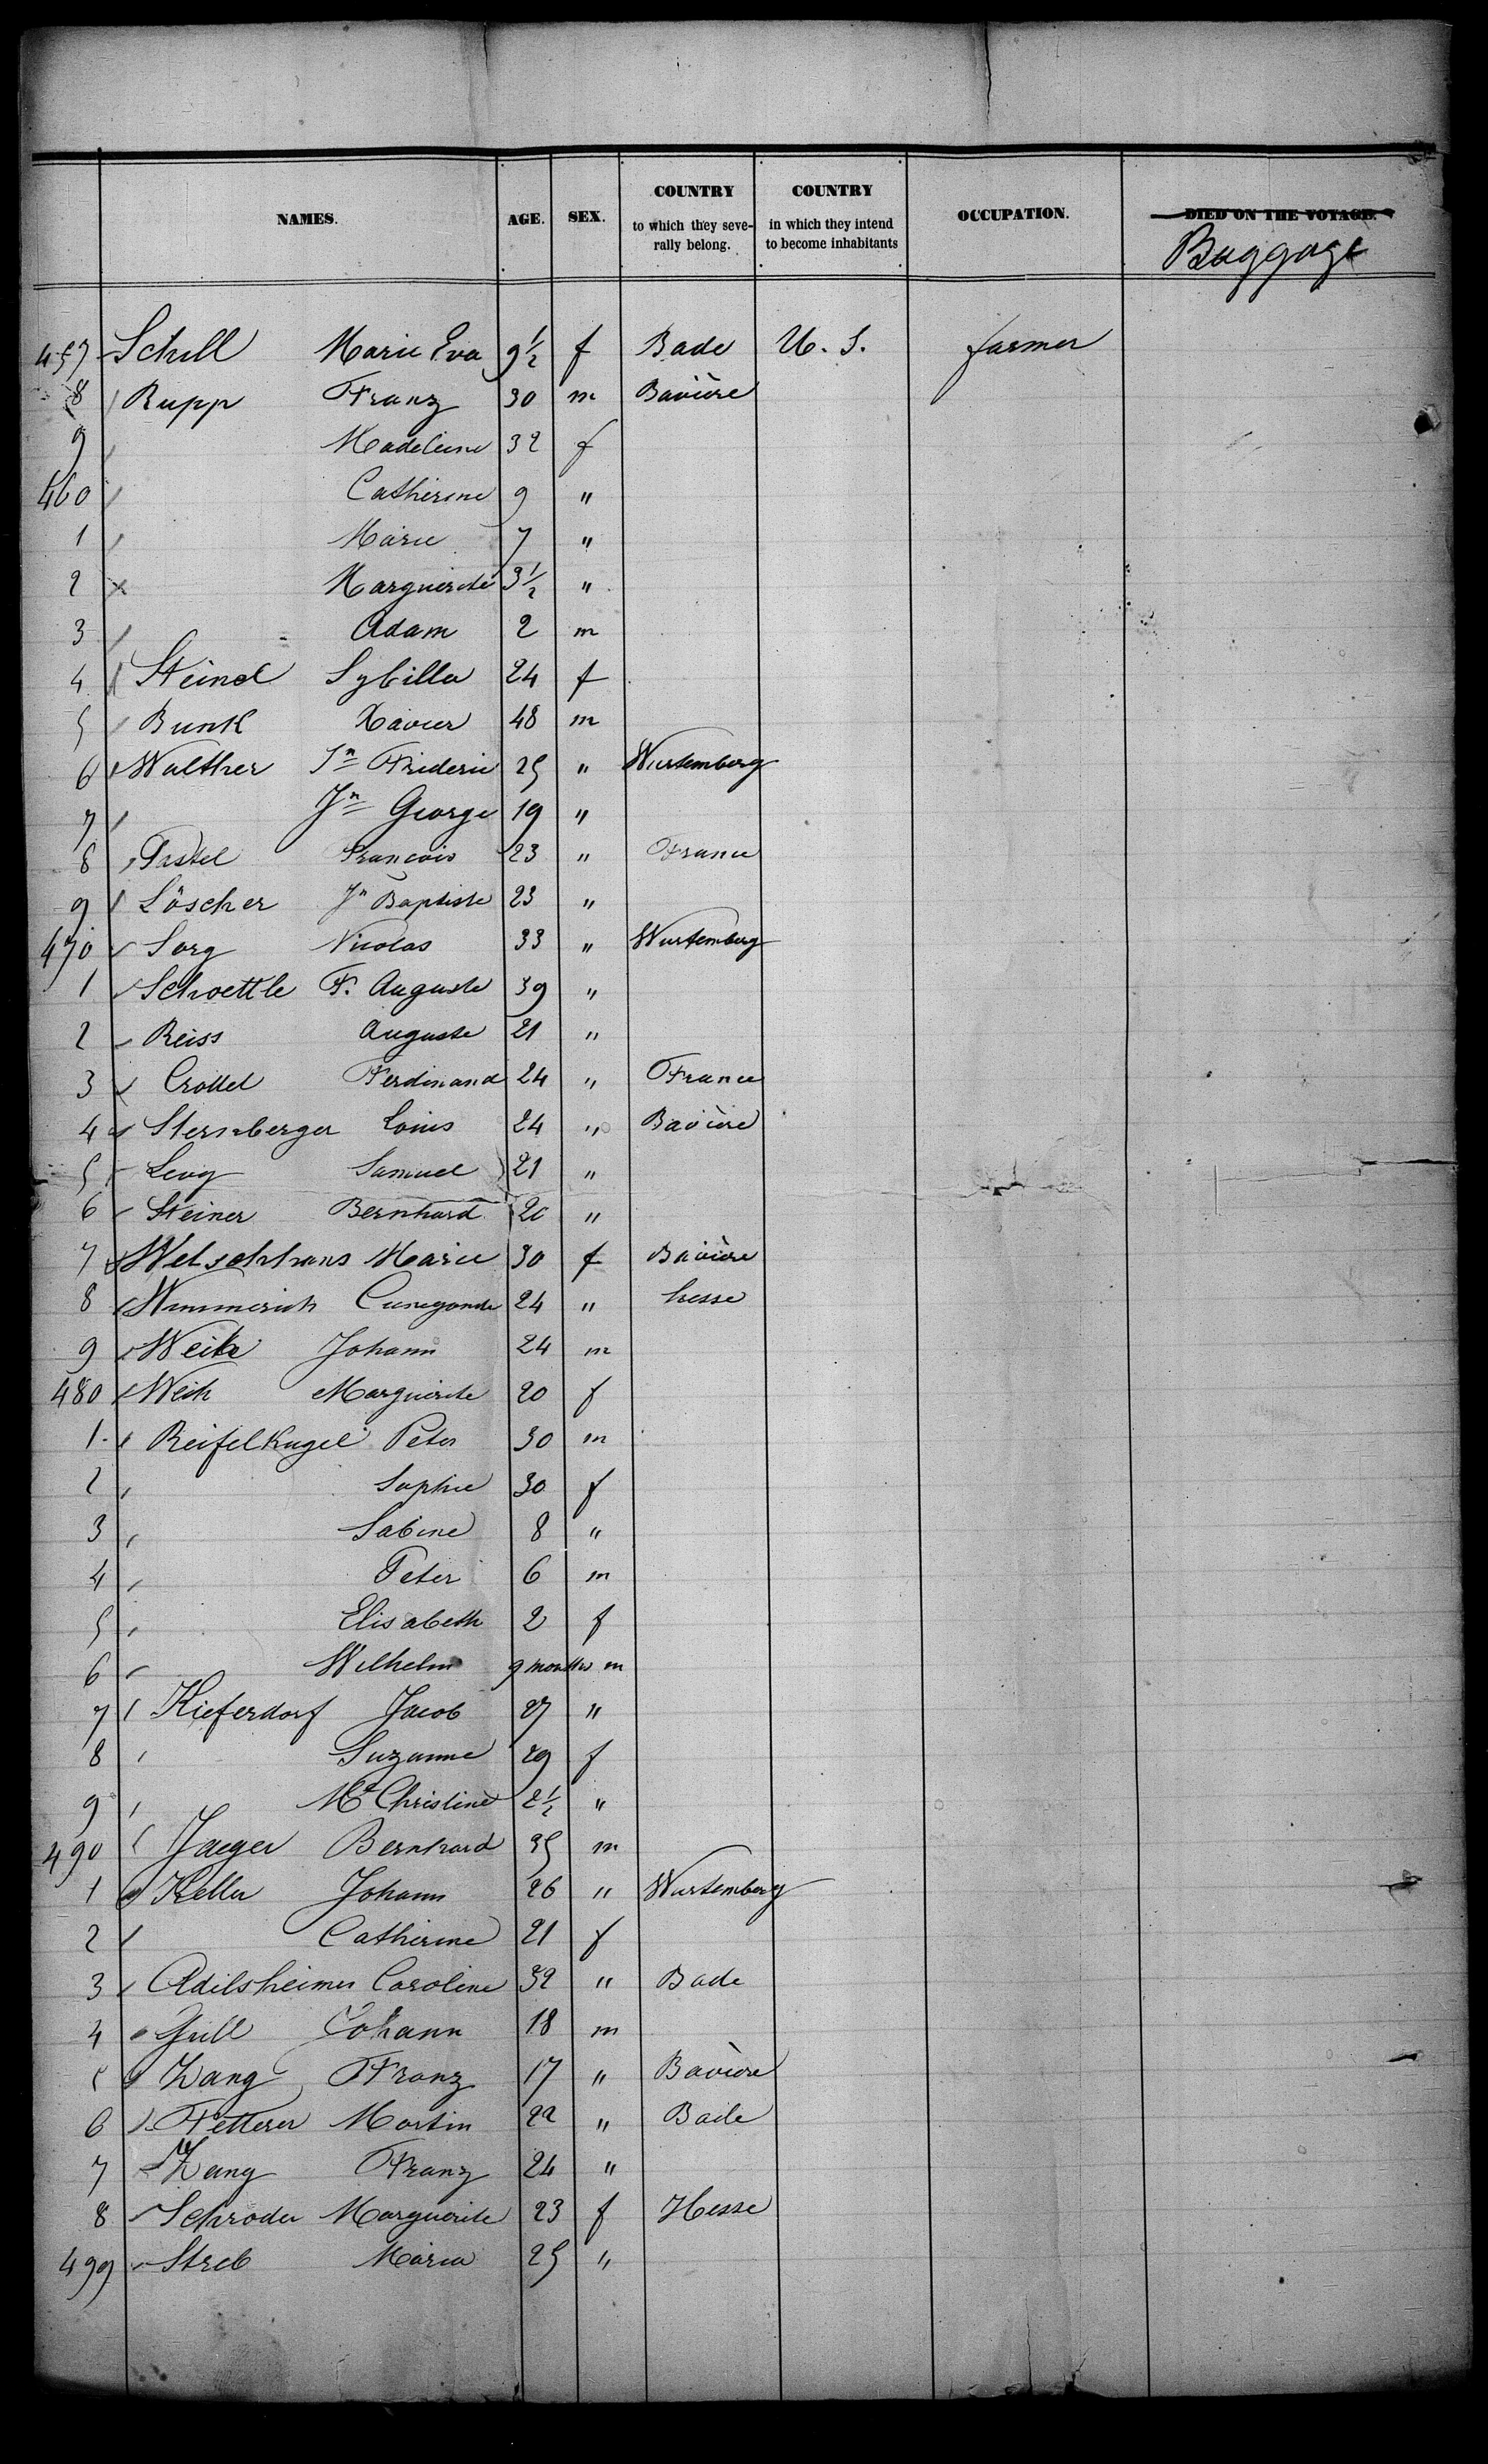 NAMES. AGE. SEX. COUNTRY to which they seve-rally belong. COUNTRY in which they intend to become inhabitants OCCUPATION. DIED ON THE VOYAGE.
Baggage
457 Schill Marie Eva 9½ f Bade U. S. farmer
8 Rupp Franz 30 m Bavière
9 Madeleine 32 f
460 Catherine 9 "
1 Marie 7 "
2 Marguerite 3½ "
3 Adam 2 m
4 Steinel Sybilla 24 f
5 Bunk Xavier 48 m
6 Walther Jn Frideric 25 " Wurtemberg
7 Jn George 19 "
8 Pastel François 23 " France
9 Löscher Jn Baptiste 23 "
470 Sorg Nicolas 33 " Wurtemberg
1 Schoettle F. Auguste 39 "
2 Reiss Auguste 21 "
3 Crottel Ferdinand 24 " France
4 Sternberger Louis 24 " Bavière
5 Levy Samuel 21 "
6 Steiner Bernhard 20 "
7 Welschhans Marie 30 f Bavière
8 Wimmerich Cunegonde 24 " hesse
9 Weik Johann 24 m
480 Weik Marguerite 20 f
1 Reifelkugel Peter 30 m
2 Sophie 30 f
3 Sabine 8 "
4 Peter 6 m
5 Elisabeth 2 f
6 Wilhelm 9 months m
7 Kieferdorf Jacob 27 "
8 Suzanne 29 f
9 Me Christine 2½ "
490 Jaeger Bernhard 35 m
1 Keller Johann 26 " Wurtemberg
2 Catherine 21 f
3 Adilsheimer Caroline 32 " Bade
4 Gull Johann 18 m
5 Zang Franz 17 " Bavière
6 Fetterer Martin 22 " Bade
7 Zang Franz 24 "
8 Schroder Marguerite 23 f Hesse
499 Streb Maria 25 "